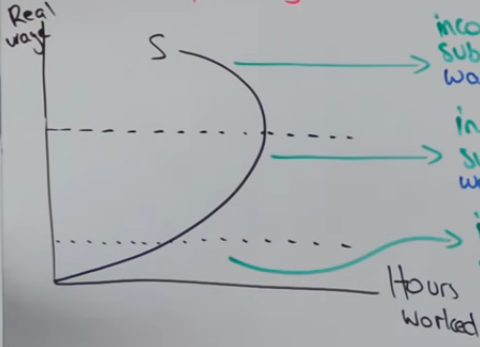 Real
wage
S
inco
sub
wa
in
su
w
Hours
Worked